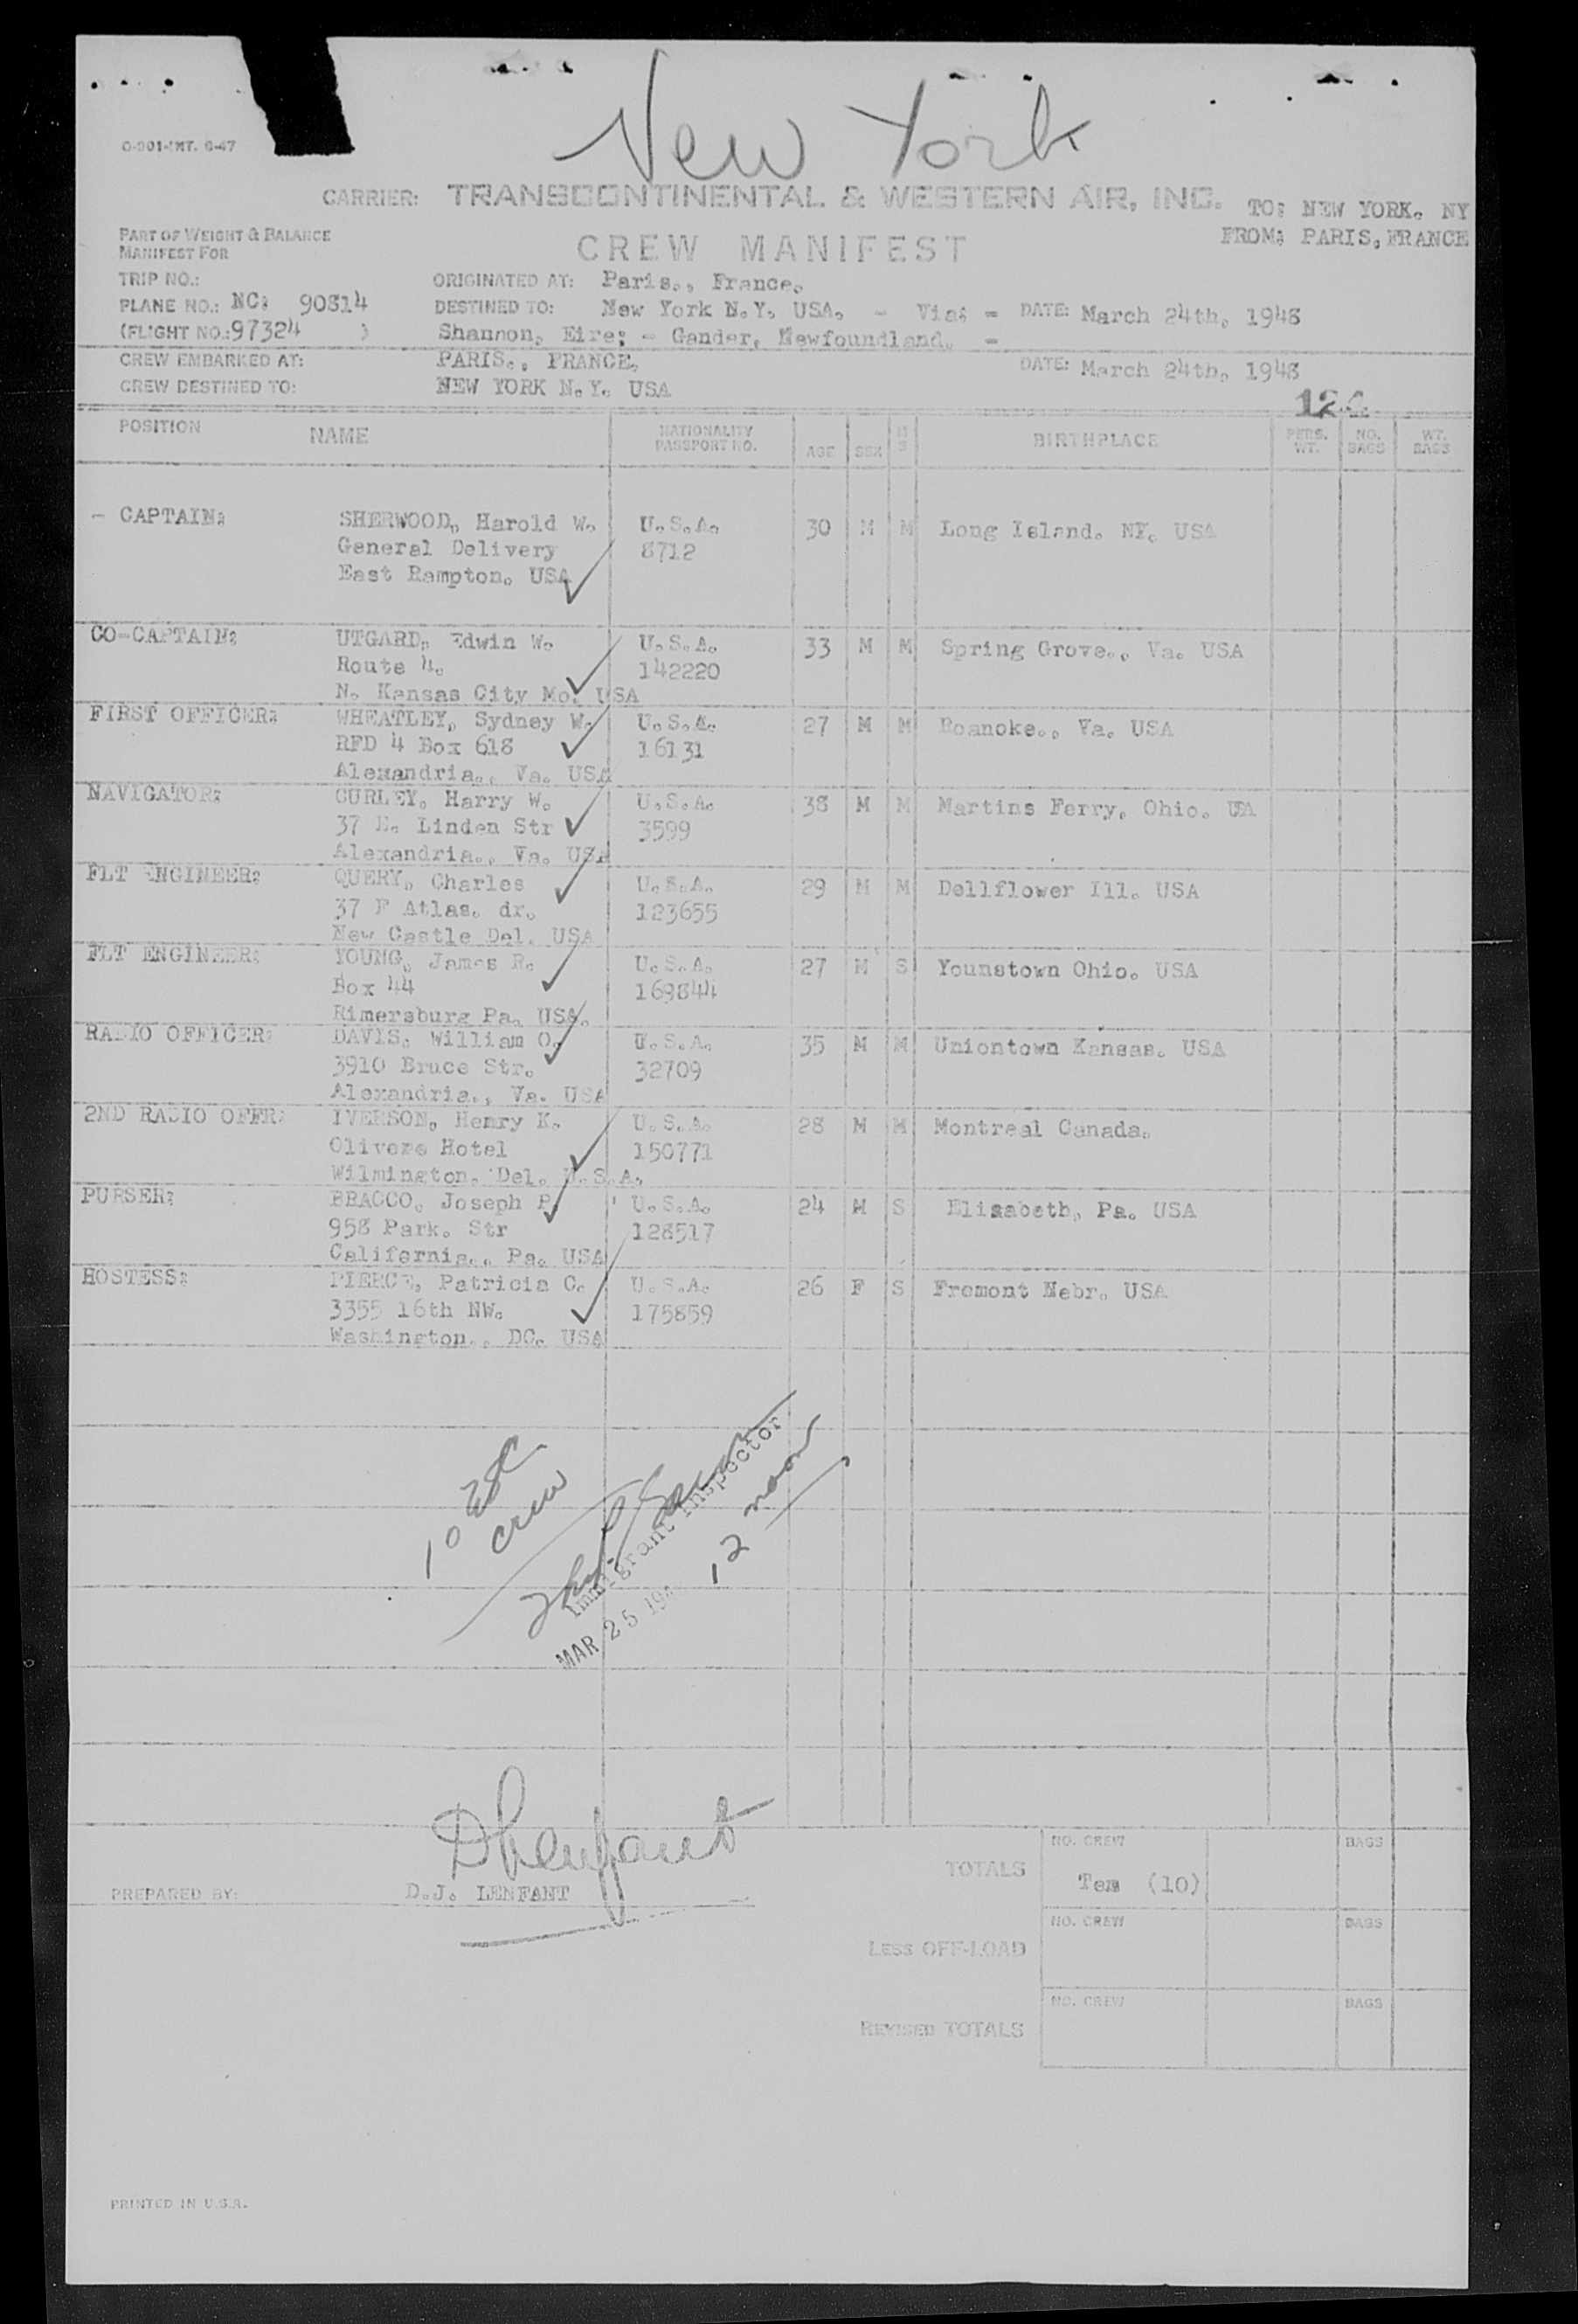 New York
O-301-INT. 6-47
CARRIER: TRANSCONTINENTAL & WESTERN AIR, INC.
TO: NEW YORK. NY
FROM: PARIS, FRANCE
PART OF WEIGHT & BALANCE
MANIFEST FOR
CREW MANIFEST
TRIP NO.:
ORIGINATED AT: Paris., France.
PLANE NO.: NC: 90814
DESTINED TO: New York N.Y. USA. - Via: - DATE: March 24th. 1948
(FLIGHT NO.: 97324 )
Shannon, Eire; - Gander, Newfoundland. -
CREW EMBARKED AT: PARIS., FRANCE. DATE: March 24th. 1948
CREW DESTINED TO: NEW YORK N.Y. USA
POSITION NAME NATIONALITY PASSPORT NO. AGE SEX M S BIRTHPLACE PERS. WT. NO. BAGS WT. BAGS
- CAPTAIN: SHERWOOD, Harold W. U.S.A. 30 M M Long Island. NY. USA
General Delivery 8712
East Hampton. USA
CO-CAPTAIN: UTGARD, Edwin W. U.S.A. 33 M M Spring Grove., Va. USA
Route 4. 142220
N. Kansas City Mo. USA
FIRST OFFICER: WHEATLEY, Sydney W. U.S.A. 27 M M Roanoke., Va. USA
RFD 4 Box 618 16131
Alexandria., Va. USA
NAVIGATOR: CURLEY. Harry W. U.S.A. 38 M M Martins Ferry, Ohio. USA
37 E. Linden Str 3599
Alexandria., Va. USA
FLT ENGINEER: QUERY, Charles U.S.A. 29 M M Dellflower Ill. USA
37 F Atlas. dr. 123655
New Castle Del. USA
FLT ENGINEER: YOUNG, James R. U.S.A. 27 M S Younstown Ohio. USA
Box 44 169844
Rimersburg Pa. USA.
RADIO OFFICER: DAVIS. William O. U.S.A. 35 M M Uniontown Kansas. USA
3910 Bruce Str. 32709
Alexandria., Va. USA
2ND RADIO OFFR: IVERSON, Henry K. U.S.A. 28 M M Montreal Canada.
Olivere Hotel 150771
Wilmington. Del. U.S.A.
PURSER: BRACCO. Joseph P. U.S.A. 24 M S Elizabeth, Pa. USA
958 Park. Str 128517
California., Pa. USA
HOSTESS: PIERCE, Patricia C. U.S.A. 26 F S Fremont Nebr. USA
3355 16th NW. 175859
Washington., DC. USA
10 USC
crew
Immigrant Inspector
MAR 25 194
12 noon
DLenfant
PREPARED BY: D.J. LENFANT
TOTALS NO. CREW Ten (10) BAGS
LESS OFF-LOAD NO. CREW BAGS
REVISED TOTALS NO. CREW BAGS
PRINTED IN U.S.A.